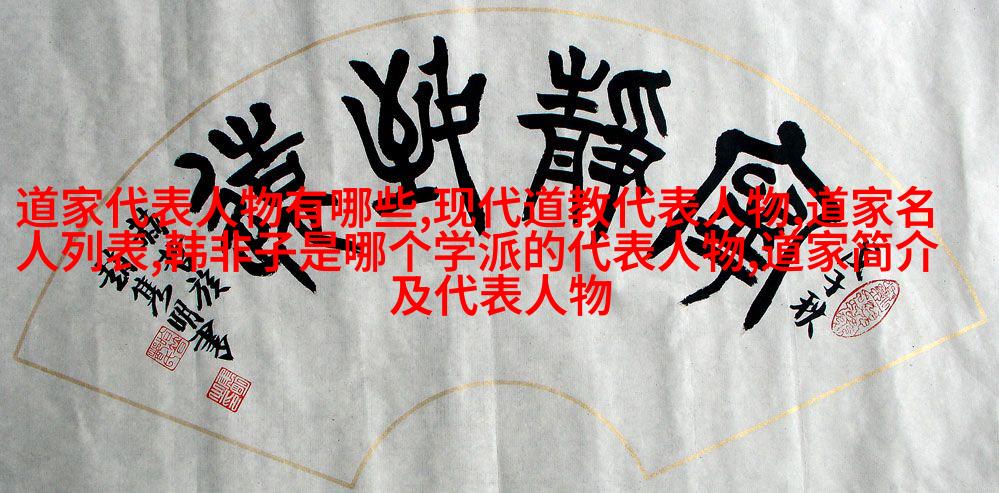 寧靜致遠
道家代表人物有哪些,现代道教代表人物,道家名
人列表,韩非子是哪个学派的代表人物,道家简介
及代表人物
子秋